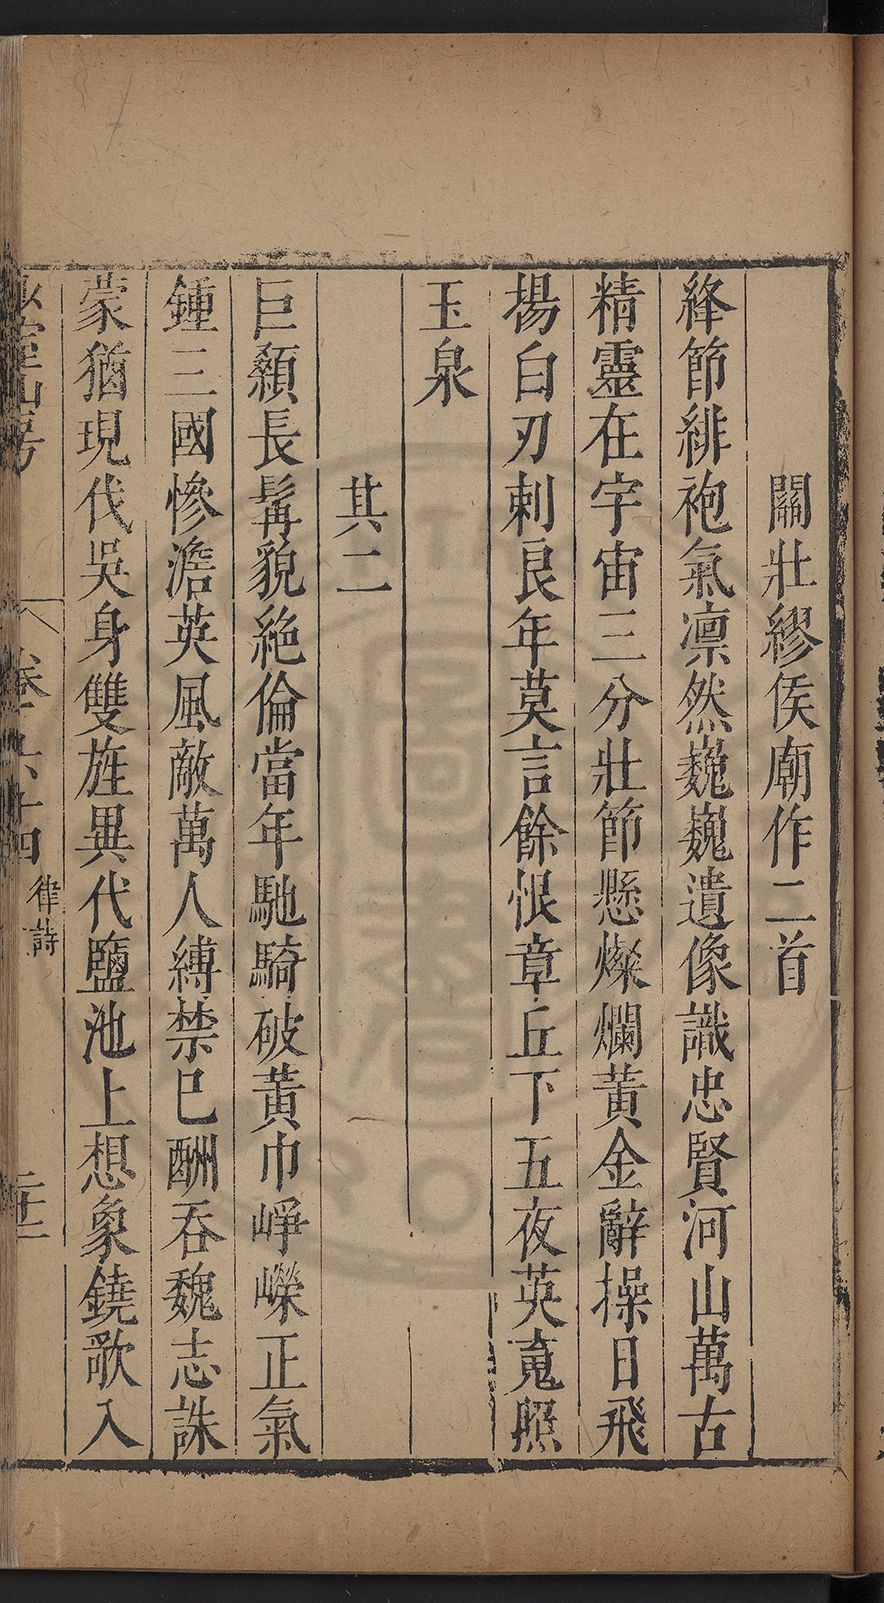 關壯繆侯廟作二首
絳節緋袍氣凛然巍巍遺像識忠賢河山萬古
精靈在宇宙三分壯節懸燦爛黃金辭操日飛
揚白刃刺良年莫言餘恨章丘下五夜英䰟照
玉泉
其二
巨顙長髯貌絶倫當年馳騎破黃巾崢嶸正氣
鍾三國慘澹英風敵萬人縛禁已酬吞魏志誅
蒙猶現伐吳身雙旌異代鹽池上想象鐃歌入
卷之六十四
律詩
二十二